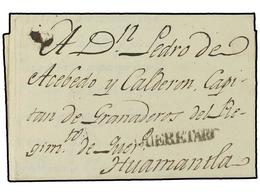 A Dn. Pedro de
Acebedo y Calderon, Capi-
tan de Granaderos del Re-
gimto. de Quer
QUERETARO
Huamantla